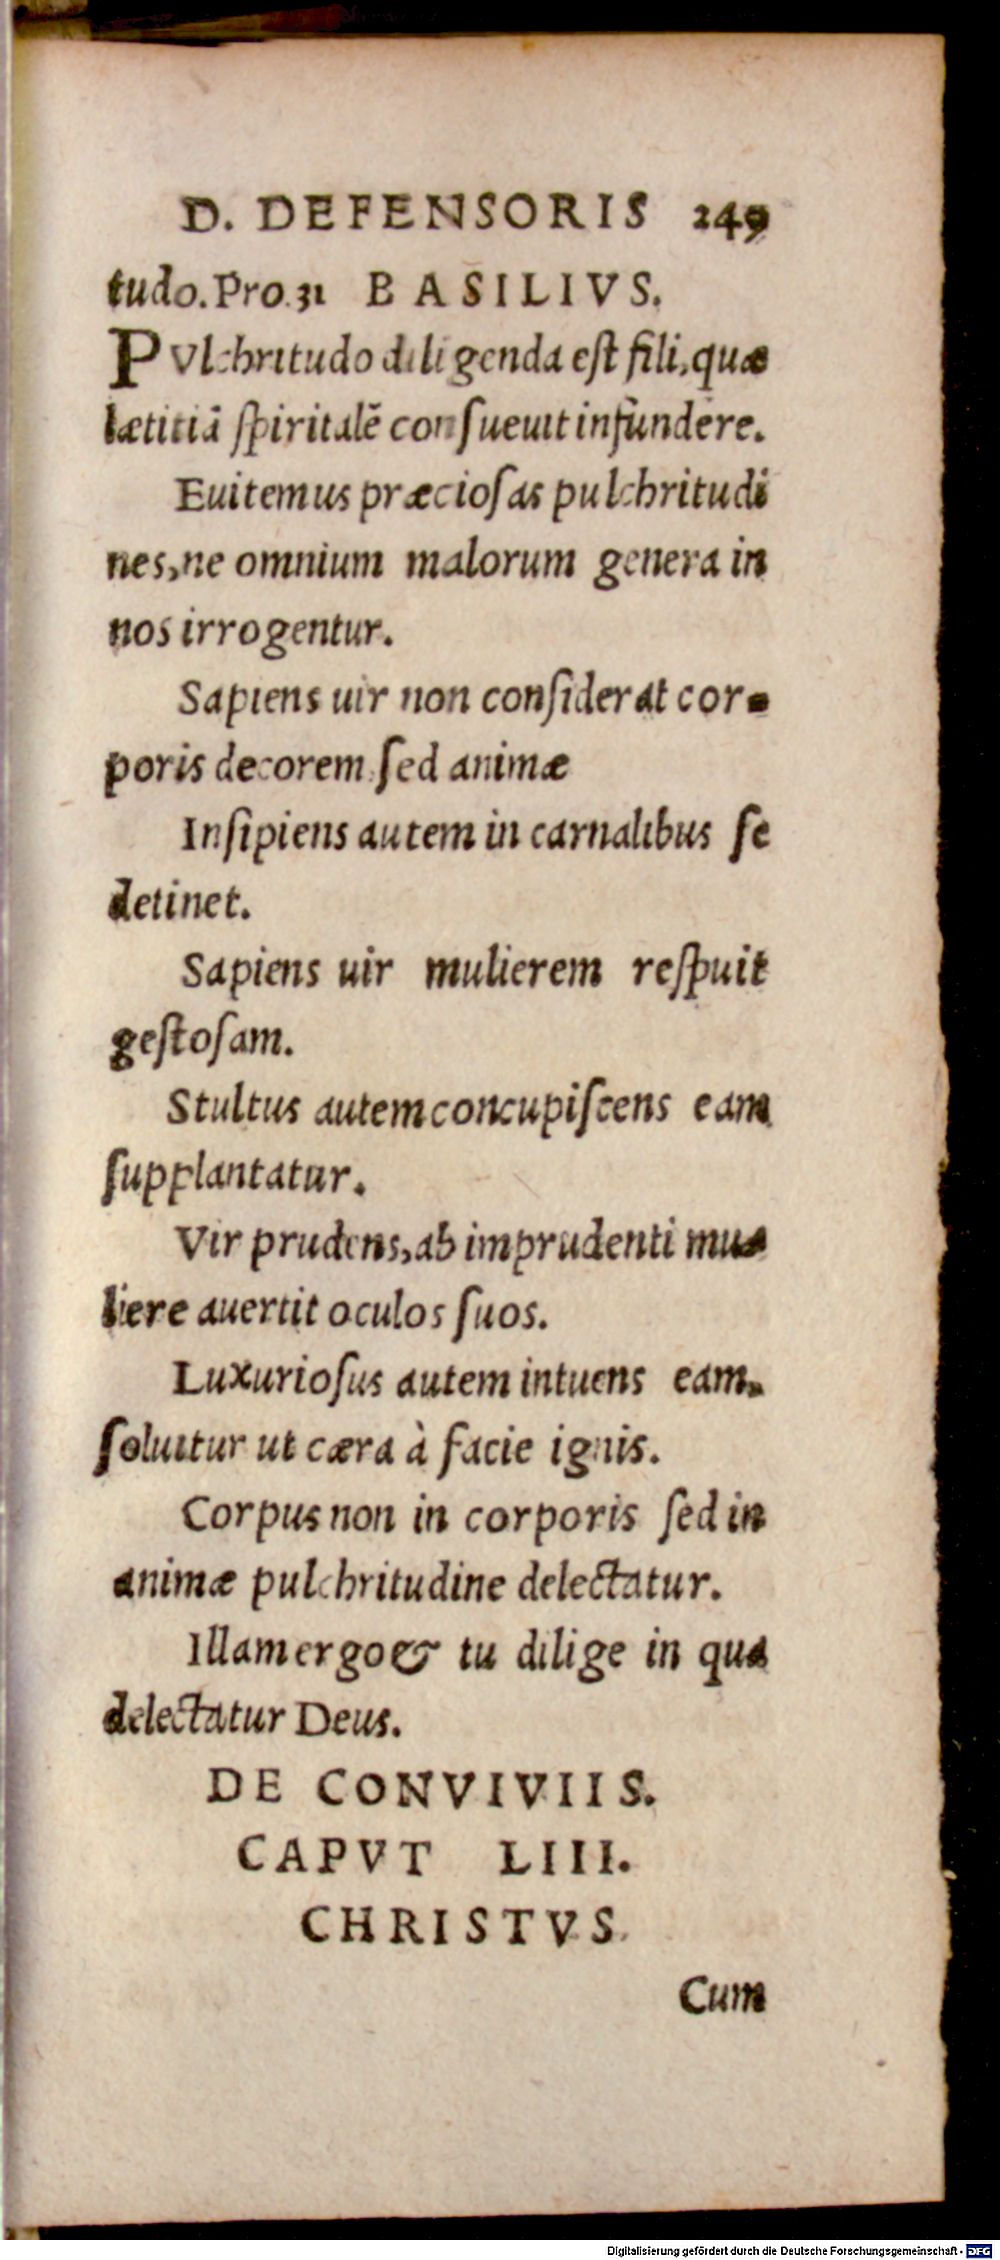 D. DEFENSORIS 249
tudo. Pro. 31 BASILIVS.
PVlchritudo diligenda eſt fili, quæ
lætitiā ſpiritalē conſueuit infundere.
Euitemus præcioſas pulchritudi
nes, ne omnium malorum genera in
nos irrogentur.
Sapiens uir non conſiderat cor-
poris decorem ſed animæ
Inſipiens autem in carnalibus ſe
detinet.
Sapiens uir mulierem reſpuit
geſtoſam.
Stultus autem concupiſcens eam
ſupplantatur.
Vir prudens, ab imprudenti mu-
liere auertit oculos ſuos.
Luxurioſus autem intuens eam,
ſoluitur ut cæra à facie ignis.
Corpus non in corporis ſed in
animæ pulchritudine delectatur.
Illam ergo & tu dilige in qua
delectatur Deus.
DE CONVIVIIS.
CAPVT LIII.
CHRISTVS.
Cum
Digitalisierung gefördert durch die Deutsche Forschungsgemeinschaft - DFG